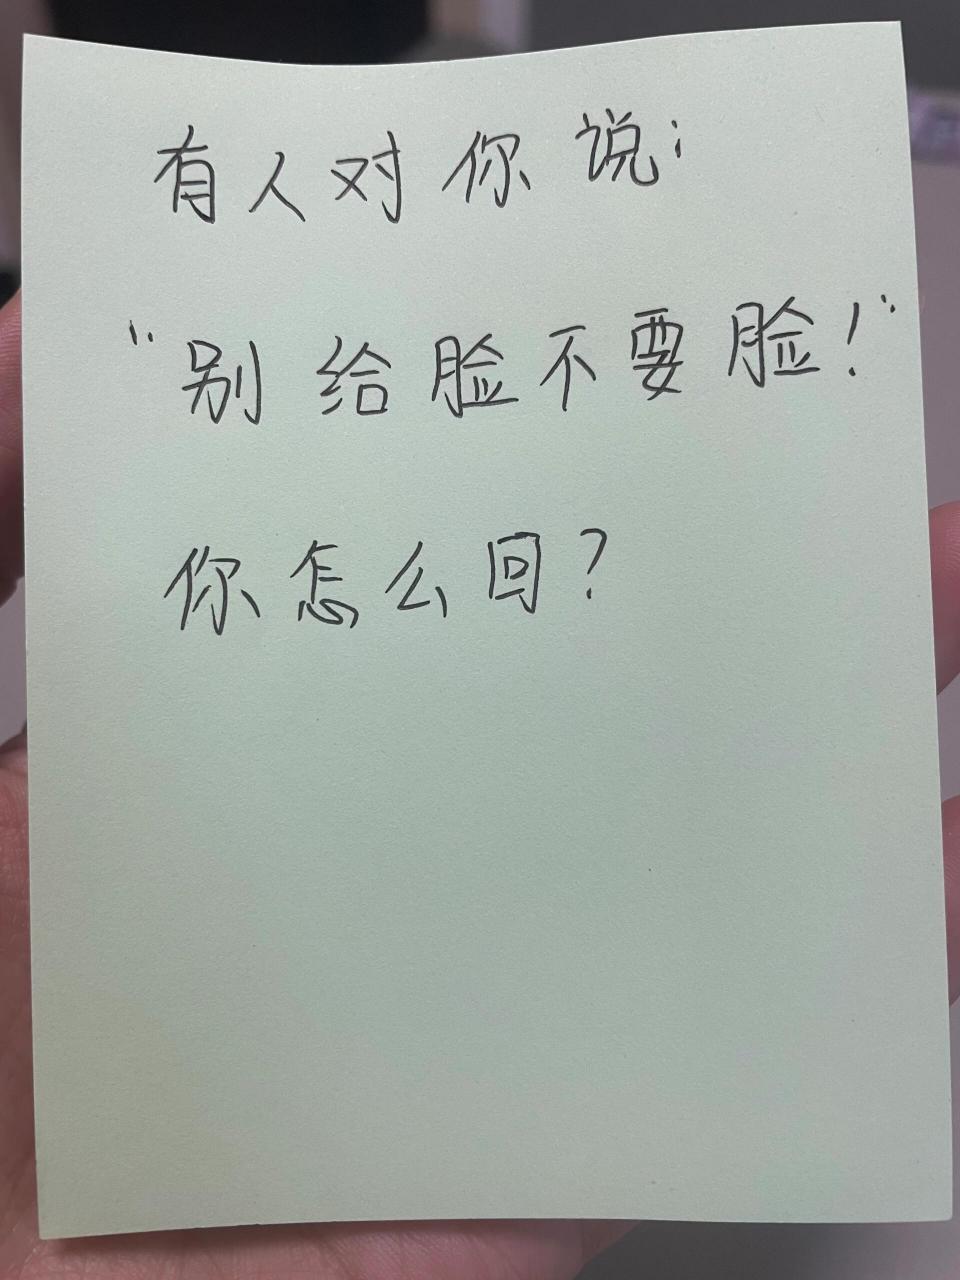 有人对你说:
"别给脸不要脸!"
你怎么回?